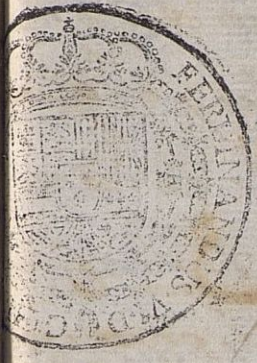 FERDINANDUS VI D G